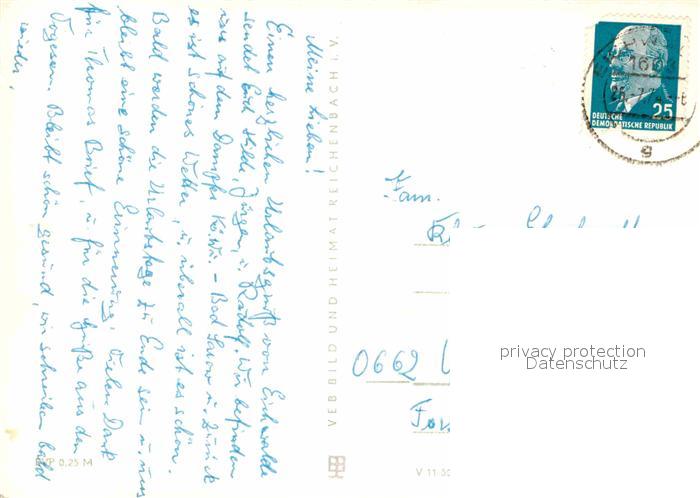 Meine Lieben!
Einen herzlichen Urlaubsgruß von Eichwalde
sendet Euch Hilde, Jürgen, u. Rudolf. Wir befinden
uns auf dem Dampfer K.Wu. - Bad Saarow u. zurück
es ist schönes Wetter, u. überall ist es schön.
Bald werden die Urlaubstage zu Ende sein u. uns
bleibt eine schöne Erinnerung. Vielen Dank
für Thomas Brief, u. für die Grüße aus den
Vogesen. Bleibt schön gesund, wir schreiben bald
wieder.
VEB BILD UND HEIMAT REICHENBACH I. V.
EVP 0,25 M
V 11 50
DEUTSCHE
DEMOKRATISCHE REPUBLIK
25
Fam.
0662
privacy protection
Datenschutz